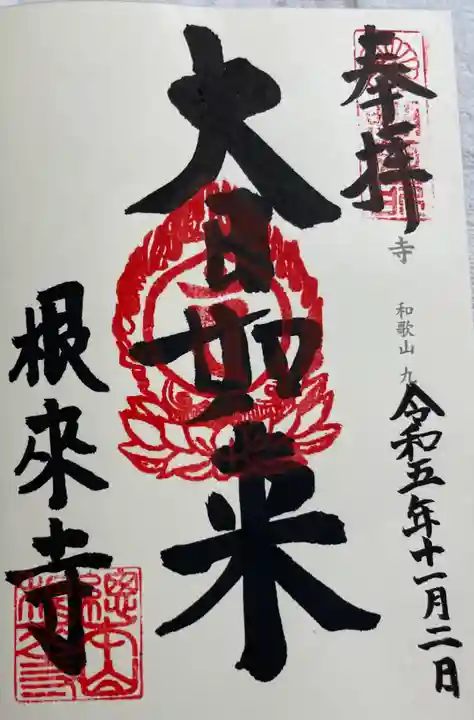 奉拝
寺 和歌山 九
令和五年十一月二日
大日如来
根来寺